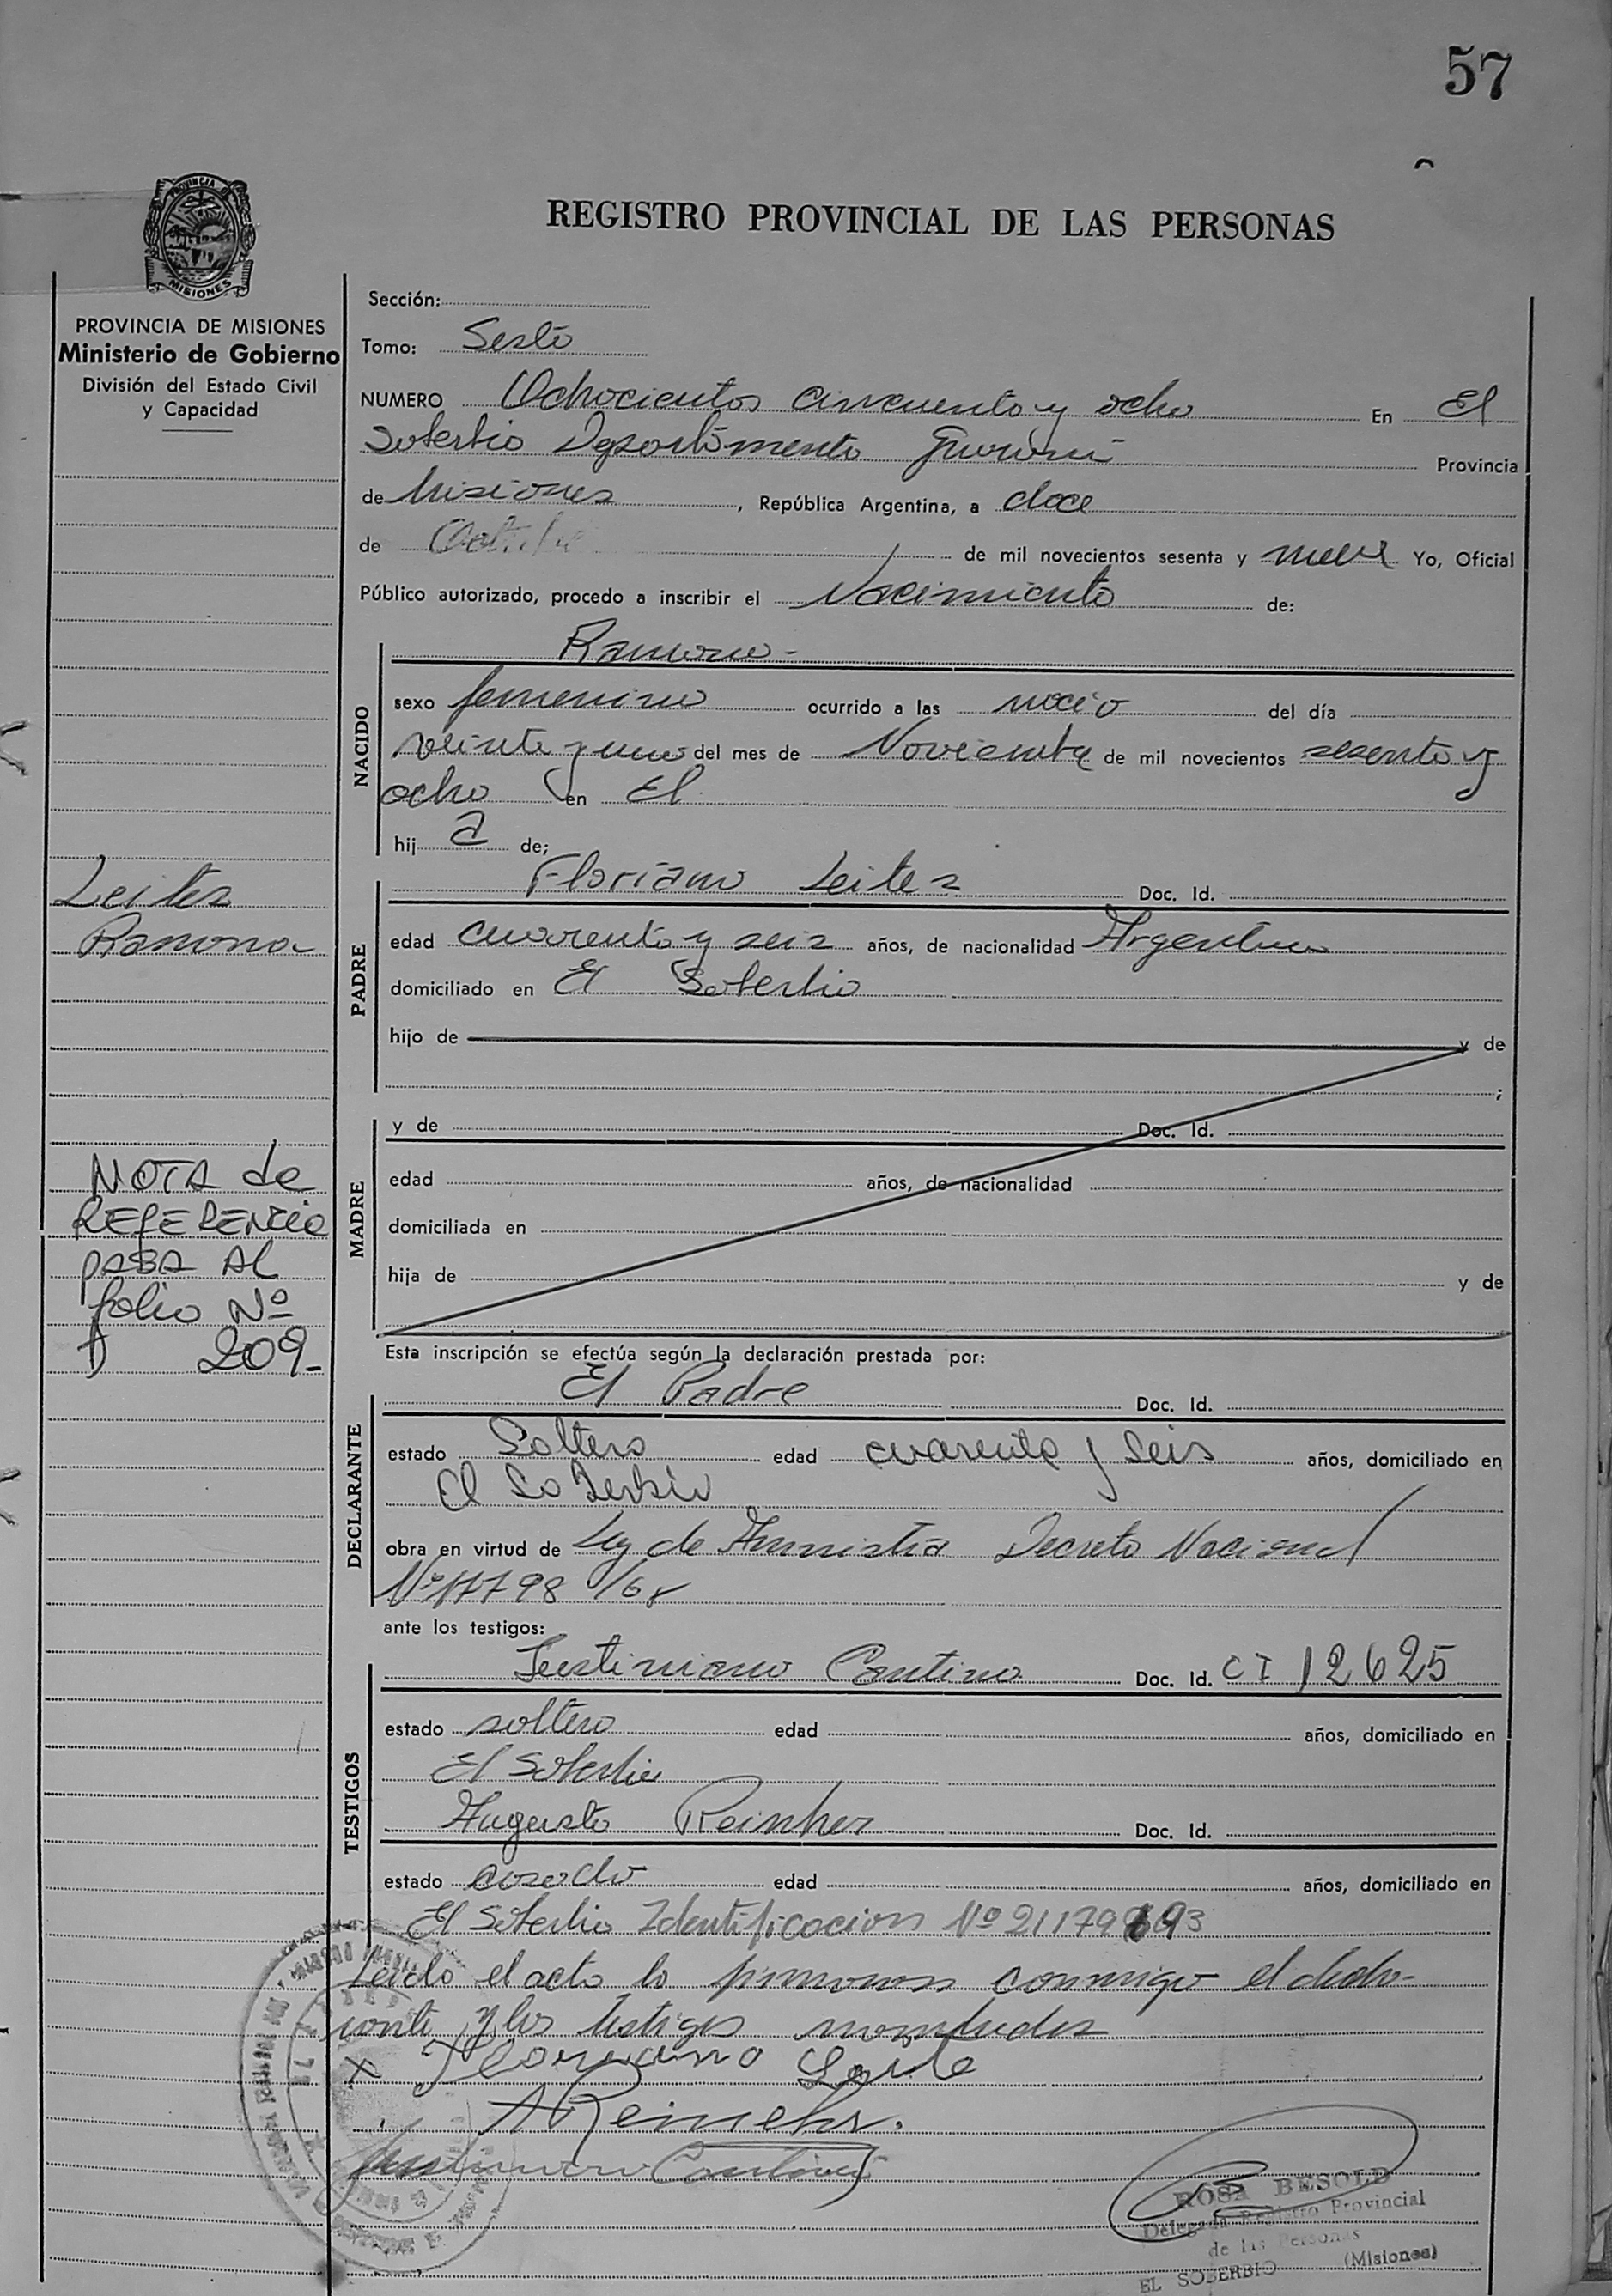 57
PROVINCIA DE
MISIONES
REGISTRO PROVINCIAL DE LAS PERSONAS
PROVINCIA DE MISIONES
Ministerio de Gobierno
División del Estado Civil
y Capacidad
Sección:
Tomo: Sesto
NUMERO Ochocientos cincuenta y ocho En El
Soberbio Departamento Guaraní Provincia
de Misiones, República Argentina, a doce
de de mil novecientos sesenta y nueve Yo, Oficial
Público autorizado, procedo a inscribir el Nacimiento de:
Ramona-
NACIDO
sexo femenino ocurrido a las del día
veinte y uno del mes de Noviembre de mil novecientos sesenta y
ocho en El
hij a de;
Leites
Ramona
PADRE
Floriano Leites Doc. Id.
edad cuarenta y seis años, de nacionalidad Argentino
domiciliado en El Soberbio
hijo de y de
;
MADRE
y de Doc. Id.
edad años, de nacionalidad
domiciliada en
hija de y de
NOTA de
REFERENCIA
PASA AL
folio Nº
209-
Esta inscripción se efectúa según la declaración prestada por:
DECLARANTE
El Padre Doc. Id.
estado Soltero edad cuarenta y seis años, domiciliado en
El Soberbio
obra en virtud de Ley de Amnistia Decreto Nacional
Nº 17798/68
ante los testigos:
TESTIGOS
Justiniano Cantino Doc. Id. CI 12625
estado soltero edad años, domiciliado en
El Soberbio
Augusto Reinher Doc. Id.
estado casado edad años, domiciliado en
El Soberbio Identificacion Nº
Leido el acta la firmaron conmigo el decla-
rante y los testigos nombrados
x Floriano Leite
A Reinehr.
Justiniano
ROSA BESOLD
Delegada Registro Provincial
de las Personas
EL SOBERBIO (Misiones)